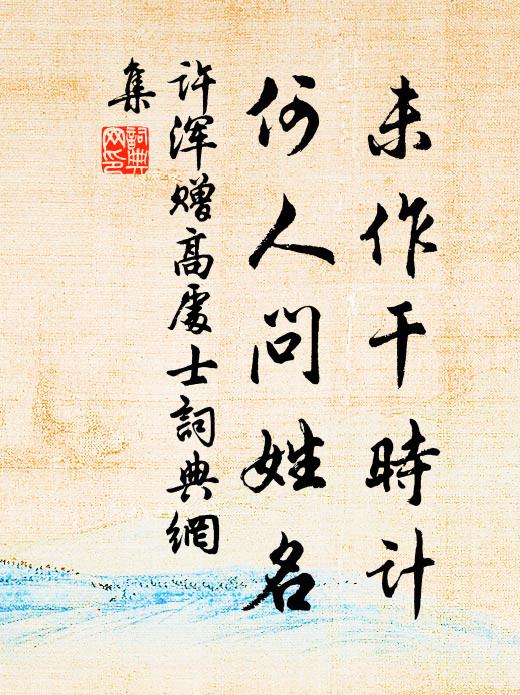 未作干時計
何人問姓名
许浑赠高處士詞典網
集
詞典網印